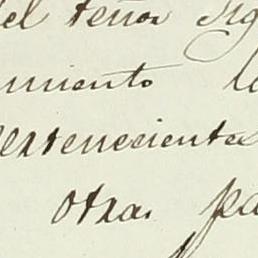 del tenor sig
miento
pertenecientes
otra pa